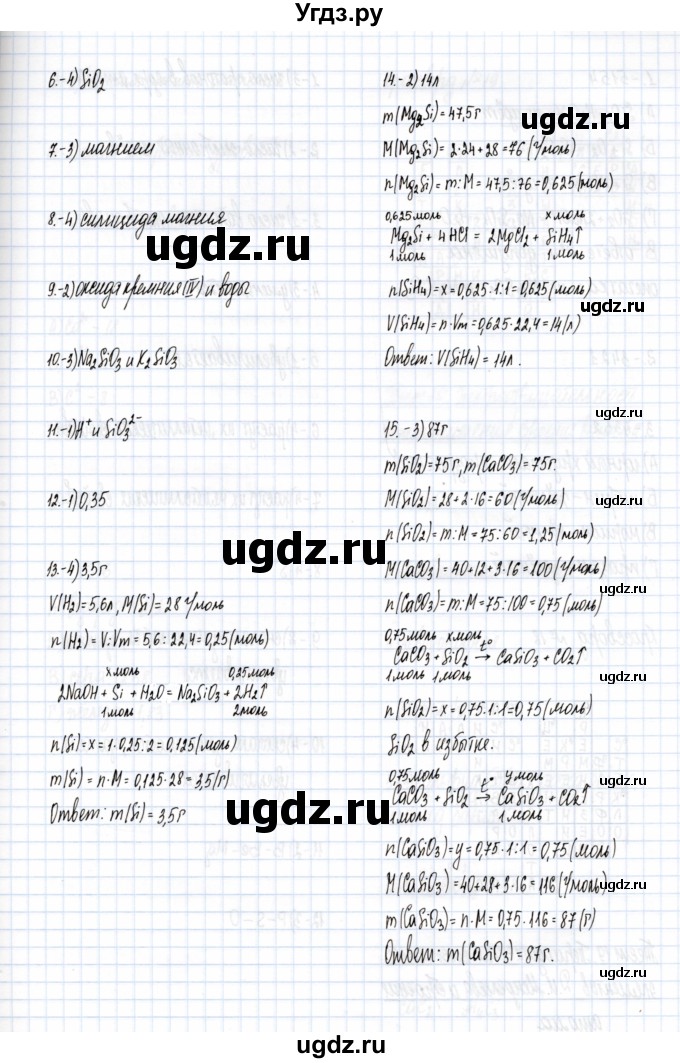 Угдз.ру
6.-4) SiO2
7.-3) магнием
8.-4) силицида магния
9.-2) оксида кремния (IV) и воды
10.-3) Na2SiO3 и K2SiO3
11.-1) H+ и SiO3 2-
12.-1) 0,35
13.-4) 3,5г
V(H2) = 5,6л, M(Si) = 28 г/моль
n(H2) = V:Vm = 5,6 : 22,4 = 0,25 (моль)
x моль 0,25 моль
2NaOH + Si + H2O = Na2SiO3 + 2H2↑
1 моль 2 моль
n(Si) = x = 1·0,25:2 = 0,125 (моль)
m(Si) = n·M = 0,125·28 = 3,5 (г)
Ответ: m(Si) = 3,5г
14.-2) 14л
m(Mg2Si) = 47,5г
M(Mg2Si) = 2·24+28 = 76 (г/моль)
n(Mg2Si) = m:M = 47,5:76 = 0,625 (моль)
0,625 моль x моль
Mg2Si + 4HCl = 2MgCl2 + SiH4↑
1 моль 1 моль
n(SiH4) = x = 0,625·1:1 = 0,625 (моль)
V(SiH4) = n·Vm = 0,625·22,4 = 14 (л)
Ответ: V(SiH4) = 14л.
15.-3) 87г
m(SiO2) = 75г, m(CaCO3) = 75г.
M(SiO2) = 28+2·16 = 60 (г/моль)
n(SiO2) = m:M = 75:60 = 1,25 (моль)
M(CaCO3) = 40+12+3·16 = 100 (г/моль)
n(CaCO3) = m:M = 75:100 = 0,75 (моль)
0,75 моль x моль
CaCO3 + SiO2 t°→ CaSiO3 + CO2↑
1 моль 1 моль
n(SiO2) = x = 0,75·1:1 = 0,75 (моль)
SiO2 в избытке.
0,75 моль y моль
CaCO3 + SiO2 t°→ CaSiO3 + CO2↑
1 моль 1 моль
n(CaSiO3) = y = 0,75·1:1 = 0,75 (моль)
M(CaSiO3) = 40+28+3·16 = 116 (г/моль)
m(CaSiO3) = n·M = 0,75·116 = 87 (г)
Ответ: m(CaSiO3) = 87г.
ugdz.ru
ugdz.ru
ugdz.ru
ugdz.ru
ugdz.ru
ugdz.ru
ugdz.ru
ugdz.ru
ugdz.ru
ugdz.ru
ugdz.ru
ugdz.ru